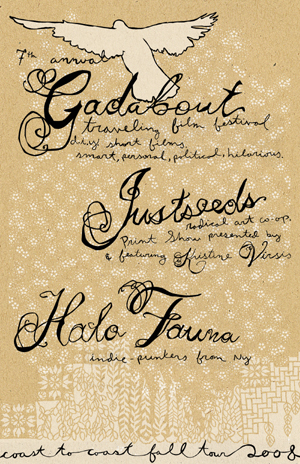 7th annual
Gadabout
traveling film festival
diy short films,
smart, personal, political, hilarious.
Justseeds
radical art co-op.
Print Show presented by
& featuring Kristine Virsis
Halo Fauna
indie-punkers from Ny
coast to coast fall tour 2008